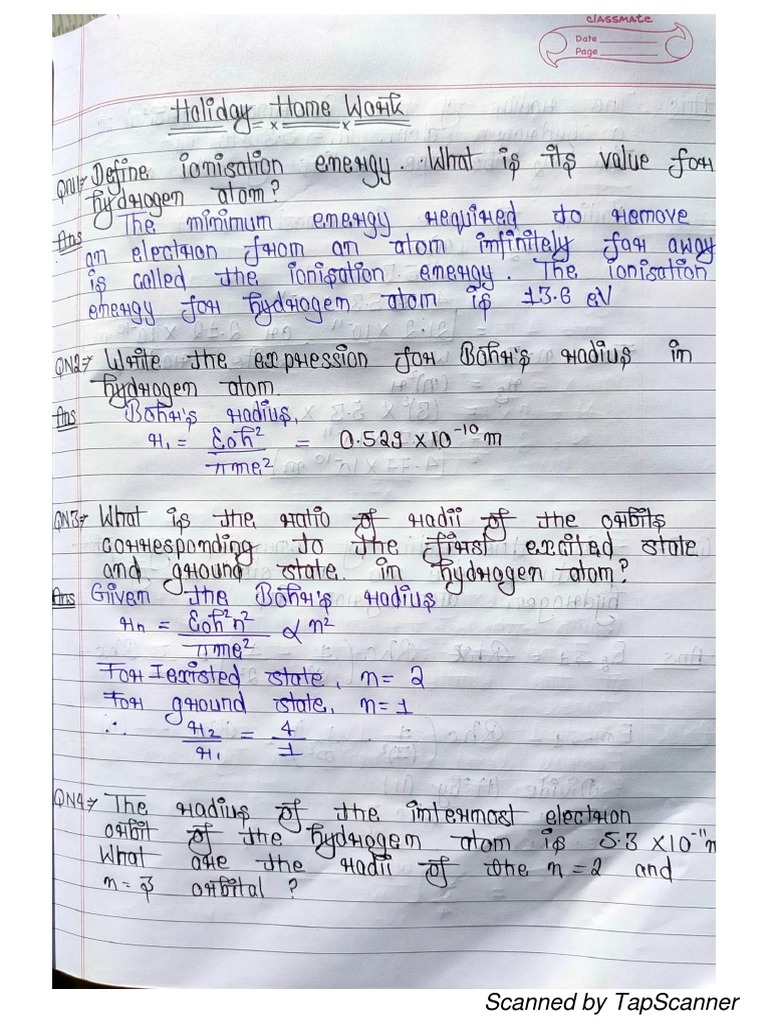 classmate
Date
Page
Holiday Home Work
QN1→ Define ionisation energy. What is its value for
hydrogen atom?
Ans The minimum energy required to remove
an electron from an atom infinitely far away
is called the ionisation energy. The ionisation
energy for hydrogen atom is 13.6 eV
QN2→ Write the expression for Bohr's radius in
hydrogen atom.
Ans Bohr's radius,
r₁ = ε₀h²/πme² = 0.529 × 10⁻¹⁰ m
QN3→ What is the ratio of radii of the orbits
corresponding to the first excited state
and ground state. in hydrogen atom?
Ans Given the Bohr's radius
rn = ε₀h²n²/πme² ∝ n²
For I existed state, n = 2
For ground state, n = 1
∴ r₂/r₁ = 4/1
QN4→ The radius of the intermost electron
orbit of the hydrogen atom is 5.3 × 10⁻¹¹ m
What are the radii of the n = 2 and
n = 3 orbital ?
Scanned by TapScanner